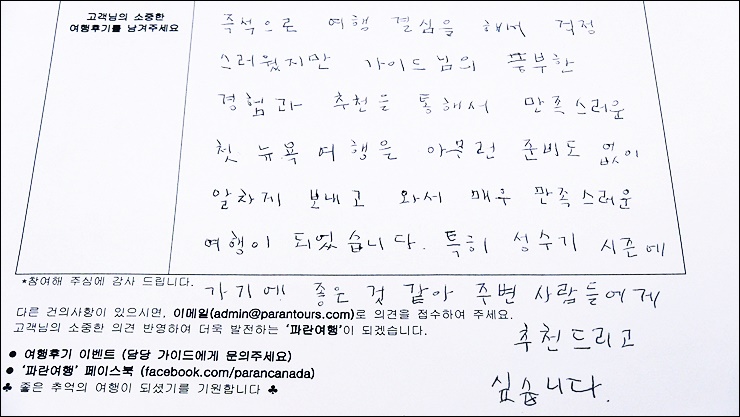 고객님의 소중한
여행후기를 남겨주세요
즉석으로 여행 결심을 해서 걱정
스러웠지만 가이드님의 풍부한
경험과 추천을 통해서 만족스러운
첫 뉴욕 여행을 아무런 준비도 없이
알차게 보내고 와서 매우 만족스러운
여행이 되었습니다. 특히 성수기 시즌에
*참여해 주심에 감사 드립니다.
가기에 좋은 것 같아 주변 사람들에게
다른 건의사항이 있으시면, 이메일(admin@parantours.com)로 의견을 접수하여 주세요.
고객님의 소중한 의견 반영하여 더욱 발전하는 '파란여행'이 되겠습니다.
추천드리고
● 여행후기 이벤트 (담당 가이드에게 문의주세요)
● '파란여행' 페이스북 (facebook.com/parancanada)
싶습니다.
♣ 좋은 추억의 여행이 되셨기를 기원합니다 ♣